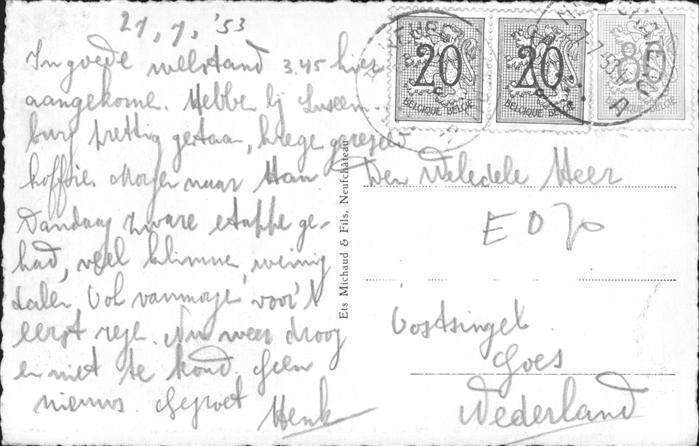 27, 7, '53
In goede welstand 3.45 hier
aangekome. Hebbe bij Luxem-
burg prettig gestaan, krege geregeld
koffie. Morgen naar Han
Vandaag zware etappe ge-
had, veel klimme, weinig
dalen. Vol vanmorge voor't
eerst rege. Nu weer droog
en niet te koud. Geen
nieuws. Gegroet Henk
Ets Michaud & Fils, Neufchâteau
20
BELGIQUE-BELGIE
20
BELGIQUE-BELGIE
BELGIQUE-BELGIE
Den Weledele Heer
Oostsingel
Goes
Nederland